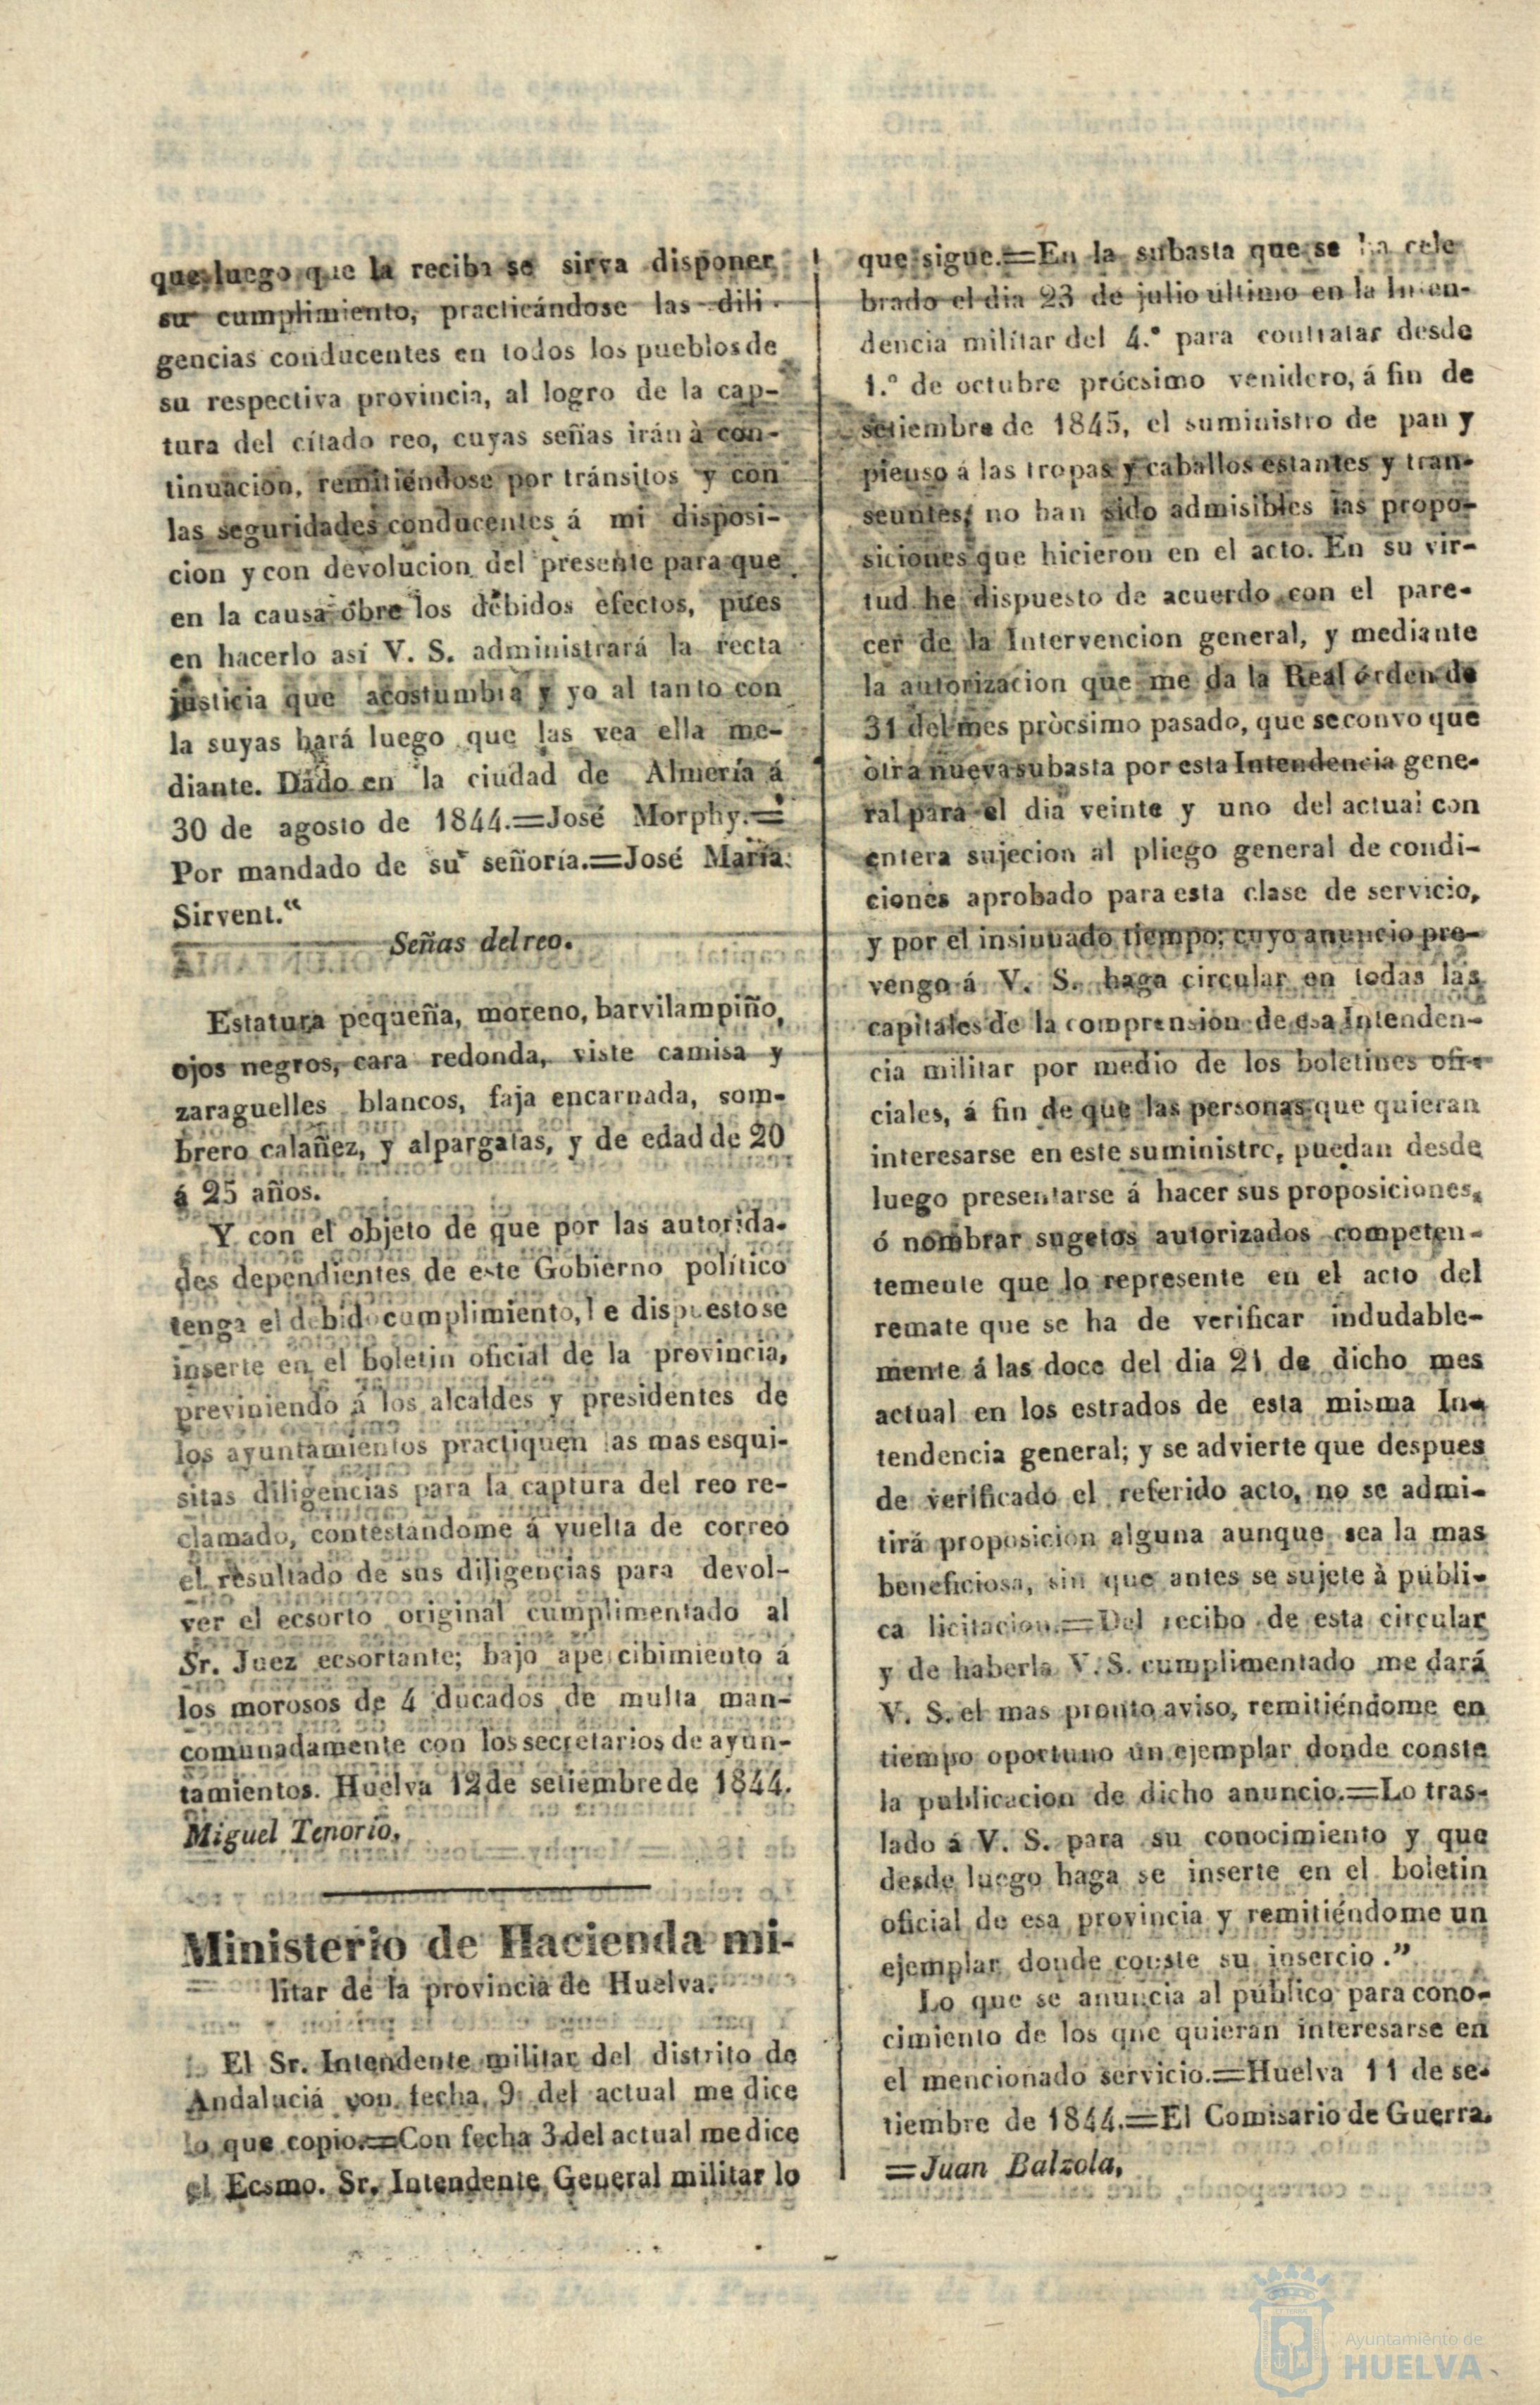 que luego que la reciba se sirva disponer
su cumplimiento, practicándose las dili-
gencias conducentes en todos los pueblos de
su respectiva provincia, al logro de la cap-
tura del citado reo, cuyas señas irán à con-
tinuacion, remitiéndose por tránsitos y con
las seguridades conducentes á mi disposi-
cion y con devolucion del presente para que
en la causa obre los debidos efectos, pues
en hacerlo asi V. S. administrará la recta
justicia que acostumbra y yo al tanto con
la suyas hará luego que las vea ella me-
diante. Dado en la ciudad de Almería á
30 de agosto de 1844.=José Morphy.=
Por mandado de su señoría.=José María
Sirvent.“
Señas del reo.
Estatura pequeña, moreno, barvilampiño,
ojos negros, cara redonda, viste camisa y
zaraguelles blancos, faja encarnada, som-
brero calañez, y alpargatas, y de edad de 20
á 25 años.
Y con el objeto de que por las autorida-
des dependientes de este Gobierno político
tenga el debido cumplimiento, he dispuesto se
inserte en el boletin oficial de la provincia,
previniendo á los alcaldes y presidentes de
los ayuntamientos practiquen las mas esqui-
sitas diligencias para la captura del reo re-
clamado, contestándome á vuelta de correo
el resultado de sus diligencias para devol-
ver el ecsorto original cumplimentado al
Sr. Juez ecsortante; bajo apercibimiento á
los morosos de 4 ducados de multa man-
comunadamente con los secretarios de ayun-
tamientos. Huelva 12 de setiembre de 1844.
Miguel Tenorio.
Ministerio de Hacienda mi-
litar de la provincia de Huelva.
El Sr. Intendente militar del distrito de
Andalucia con fecha 9 del actual me dice
lo que copio.=Con fecha 3 del actual me dice
el Ecsmo. Sr. Intendente General militar lo
que sigue.=En la subasta que se ha cele
brado el dia 23 de julio último en la Inten-
dencia militar del 4.º para contratar desde
1.º de octubre prócsimo venidero, á fin de
setiembre de 1845, el suministro de pan y
pienso á las tropas y caballos estantes y tran-
seuntes, no han sido admisibles las propo-
siciones que hicieron en el acto. En su vir-
tud he dispuesto de acuerdo con el pare-
cer de la Intervencion general, y mediante
la autorizacion que me da la Real órden de
31 del mes pròcsimo pasado, que se convo que
otra nueva subasta por esta Intendencia gene-
ral para el dia veinte y uno del actual con
entera sujecion al pliego general de condi-
ciones aprobado para esta clase de servicio,
y por el insinuado tiempo; cuyo anuncio pre-
vengo á V. S. haga circular en todas las
capitales de la comprension de esa Intenden-
cia militar por medio de los boletines ofi-
ciales, á fin de que las personas que quieran
interesarse en este suministro, puedan desde
luego presentarse á hacer sus proposiciones,
ó nombrar sugetos autorizados competen-
temente que lo represente en el acto del
remate que se ha de verificar indudable-
mente á las doce del dia 21 de dicho mes
actual en los estrados de esta misma In-
tendencia general; y se advierte que despues
de verificado el referido acto, no se admi-
tirá proposicion alguna aunque sea la mas
beneficiosa, sin que antes se sujete à públi-
ca licitacion.=Del recibo de esta circular
y de haberla V. S. cumplimentado me dará
V. S. el mas pronto aviso, remitiéndome en
tiempo oportuno un ejemplar donde conste
la publicacion de dicho anuncio.=Lo tras-
lado á V. S. para su conocimiento y que
desde luego haga se inserte en el boletin
oficial de esa provincia y remitiéndome un
ejemplar donde conste su insercio .”
Lo que se anuncia al público para cono-
cimiento de los que quieran interesarse en
el mencionado servicio.=Huelva 11 de se-
tiembre de 1844.=El Comisario de Guerra.
=Juan Balzola.
Ayuntamiento de
HUELVA